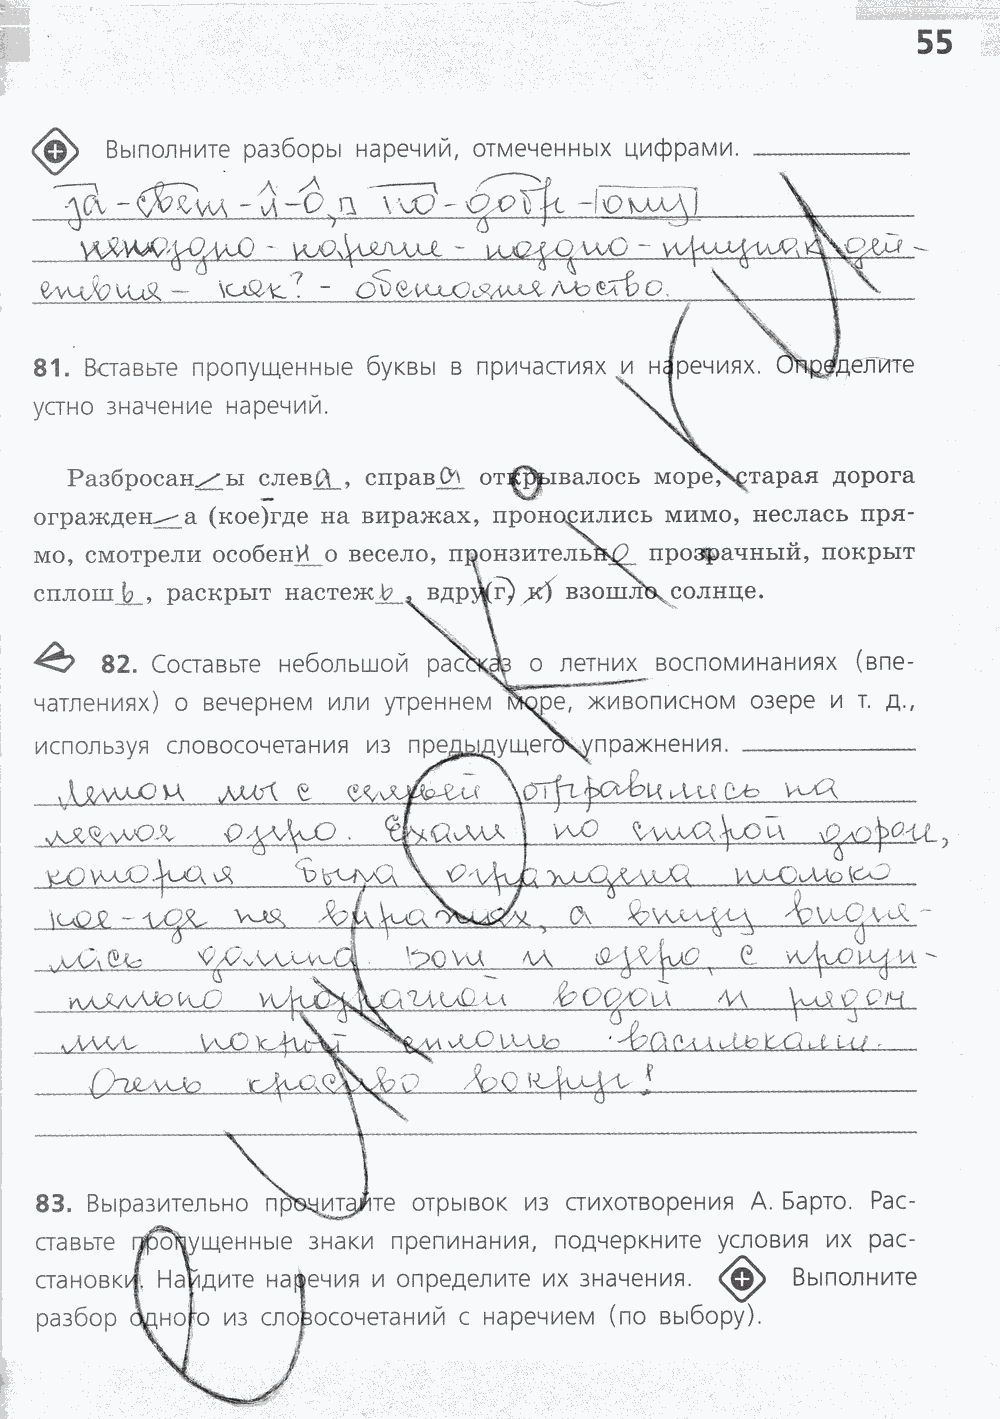 55
Выполните разборы наречий, отмеченных цифрами.
за-свет-л-о, по-добр-ому
непоздно - наречие - поздно - признак дей-
ствия - как? - обстоятельство.
81. Вставьте пропущенные буквы в причастиях и наречиях. Определите
устно значение наречий.
Разбросан ы слева, справа открывалось море, старая дорога
огражден а (кое)-где на виражах, проносились мимо, неслась пря-
мо, смотрели особенн о весело, пронзительно прозрачный, покрыт
сплошь, раскрыт настежь, вдру(г, к) взошло солнце.
82. Составьте небольшой рассказ о летних воспоминаниях (впе-
чатлениях) о вечернем или утреннем море, живописном озере и т. д.,
используя словосочетания из предыдущего упражнения.
Летом мы с семьей отправились на
лесное озеро. Ехали по старой дороге,
которая была ограждена только
кое-где на виражах, а внизу видне-
лась долина. Вот и озеро, с пронзи-
тельно прозрачной водой и рядом
покрыт сплошь васильками.
Очень красиво вокруг!
83. Выразительно прочитайте отрывок из стихотворения А. Барто. Рас-
ставьте пропущенные знаки препинания, подчеркните условия их рас-
становки. Найдите наречия и определите их значения. Выполните
разбор одного из словосочетаний с наречием (по выбору).